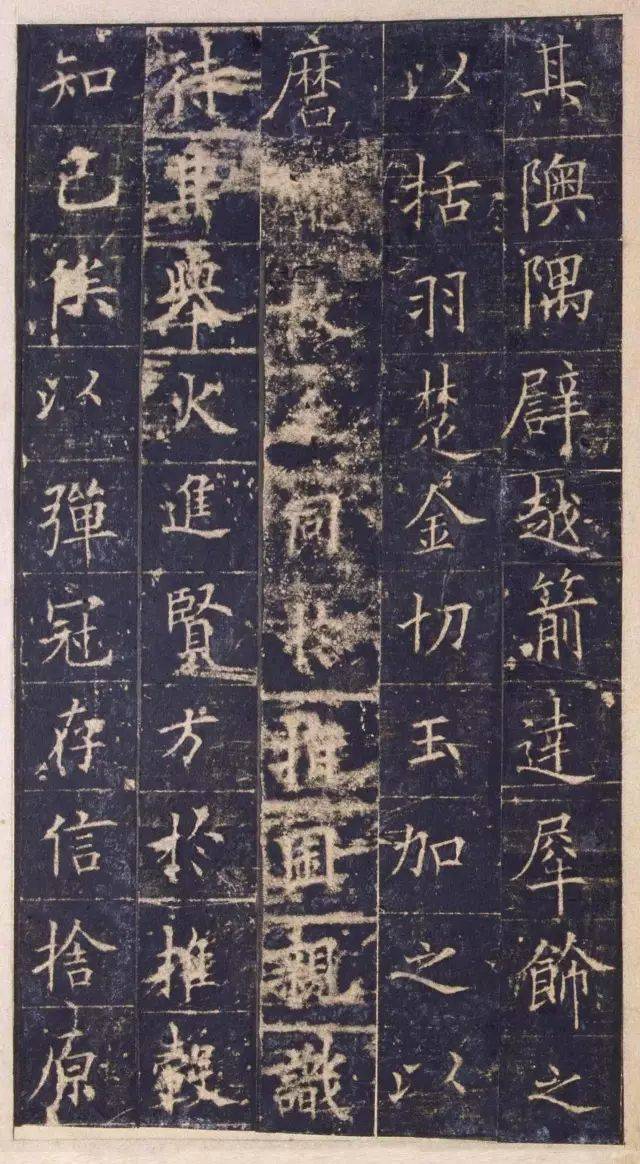 其隩隅辟越箭達犀飾之
以括羽楚金切玉加之以
磨救乏同於推囷親識
待其舉火進賢方於推轂
知己俟以彈冠存信捨原